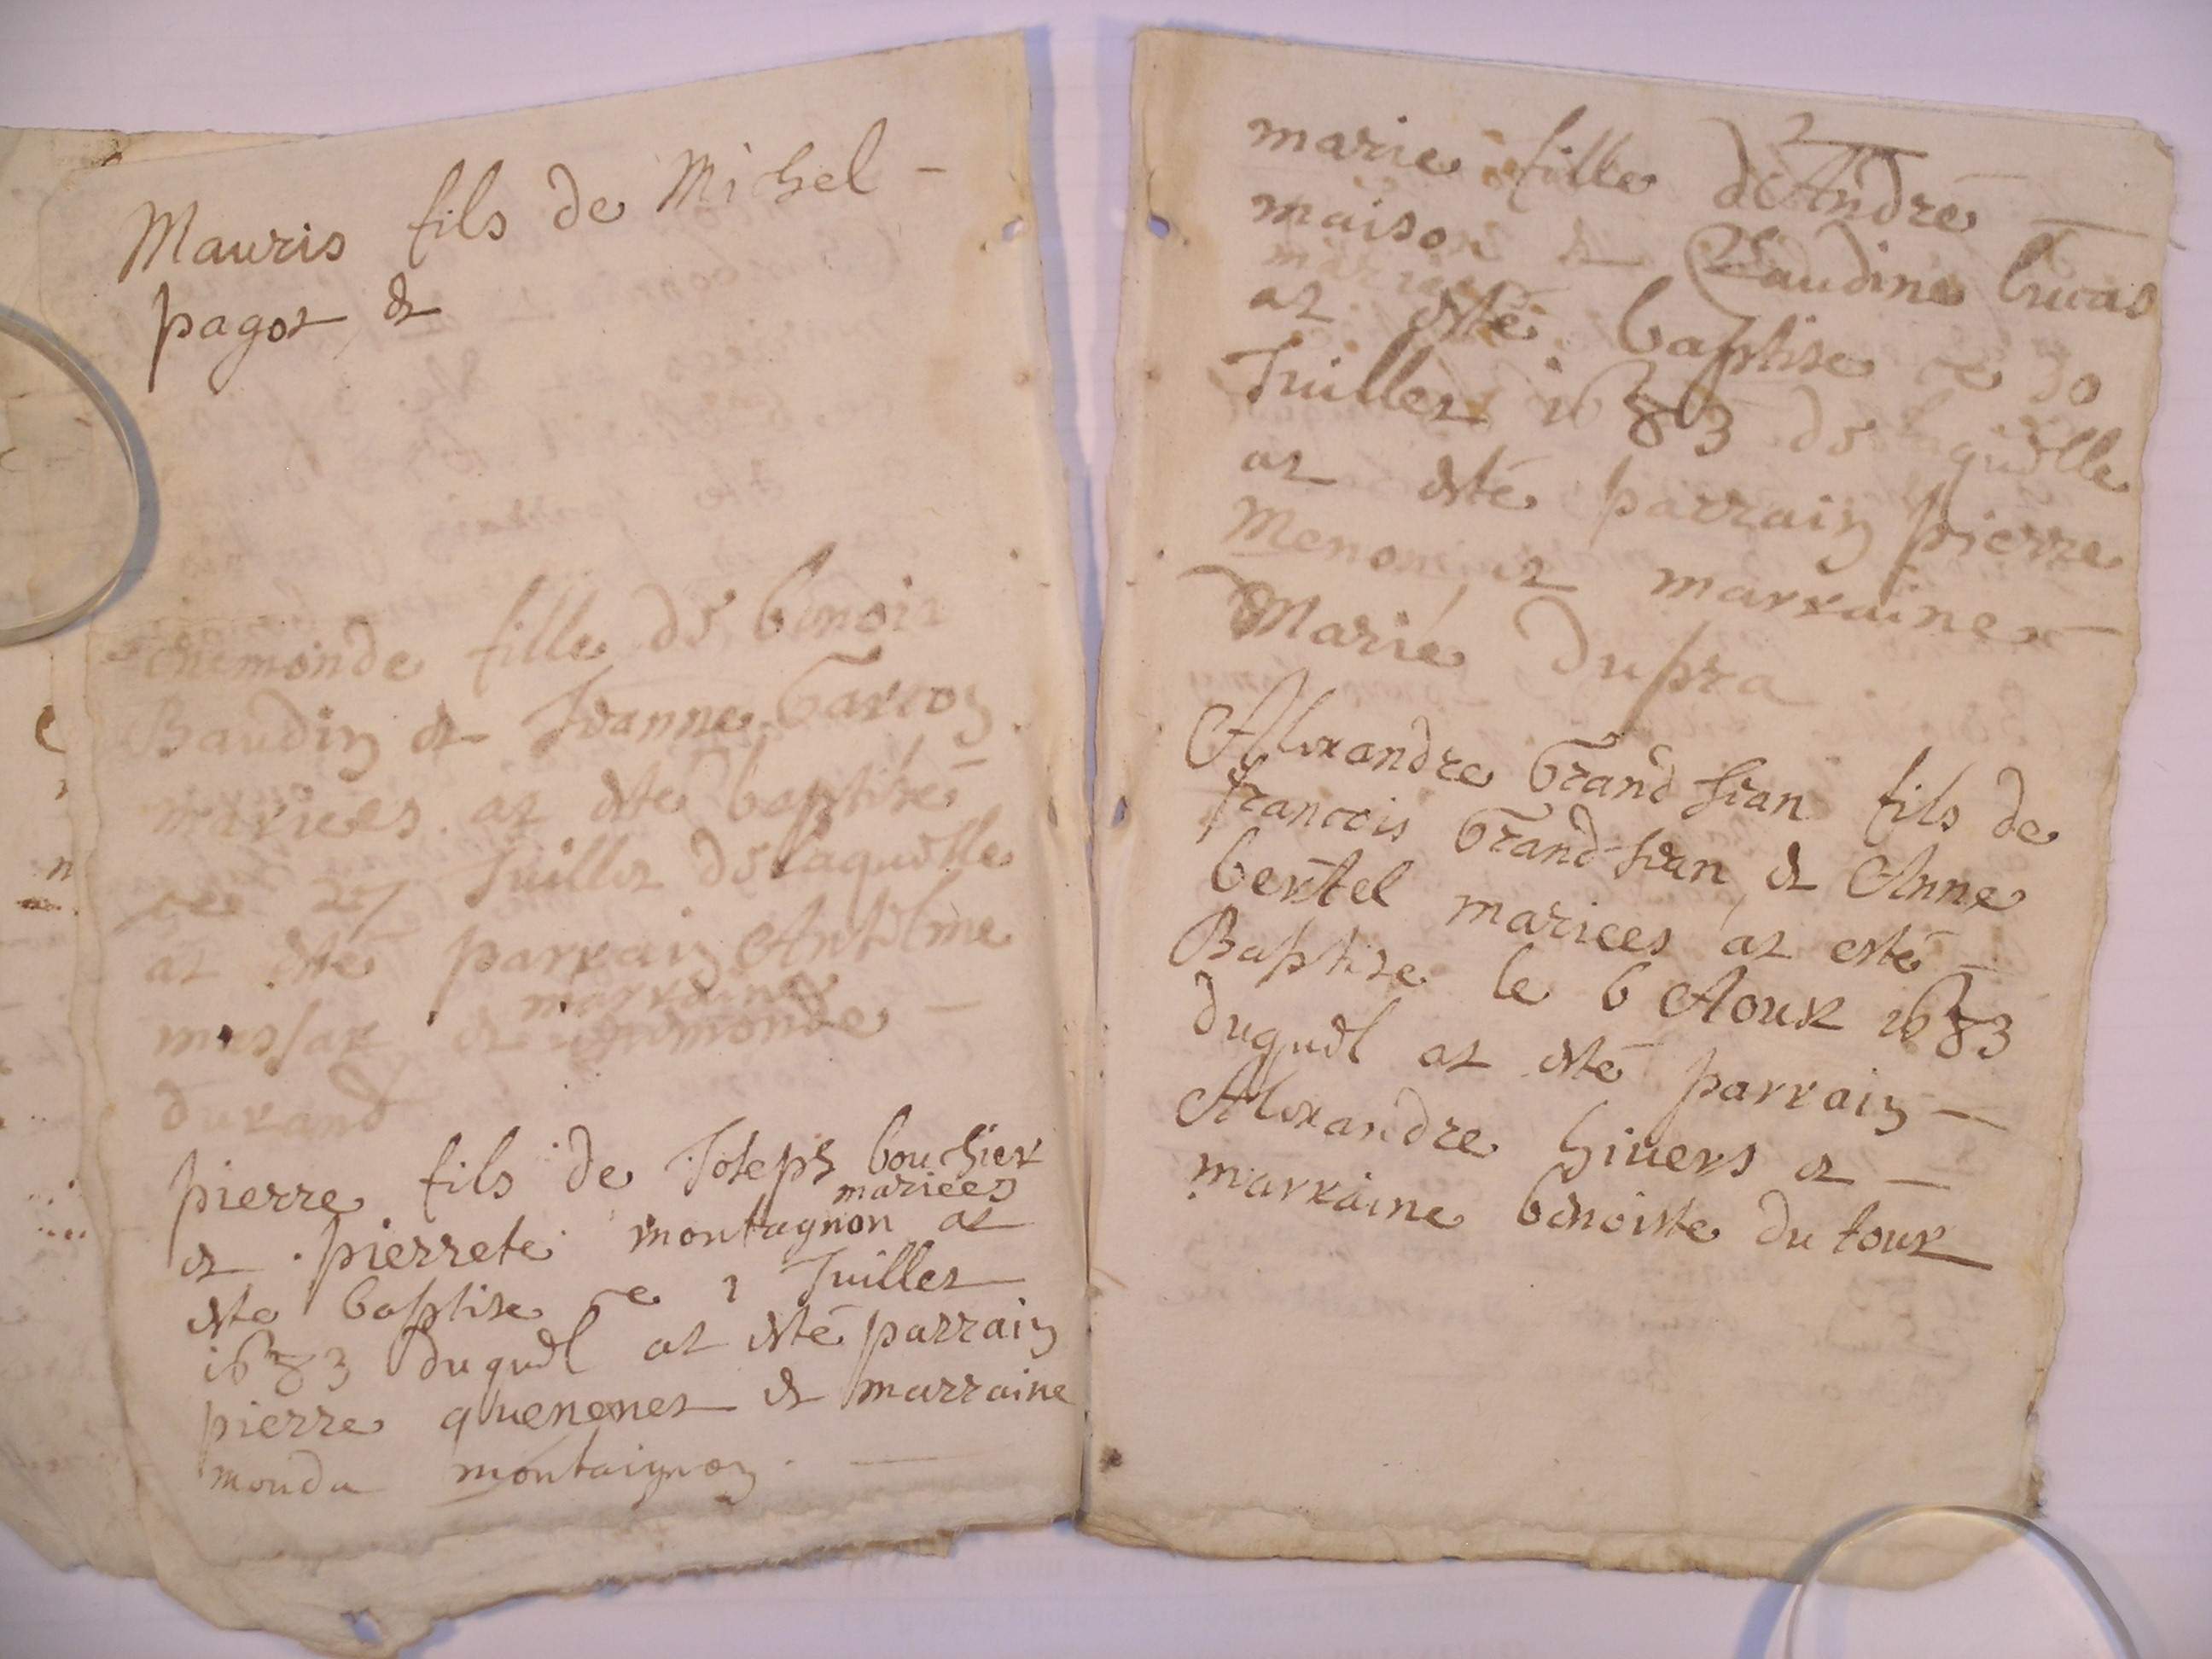 Mauris fils de Michel -
pagot et
fille de benoit
Baudin et Jeanne Garcon
mariees at esté baptisée
ce 27 Juillet de laquelle
at esté parrain Antelme
marraine
mussar et
durand
pierre fils de Joseph bouchier
mariees
et pierrete montagnon at
esté baptise ce 1 Juillet
1683 duquel at esté parrain
pierre quenenet et marraine
monda montaignon
2
marie fille d'André
maison et Claudine lucas
mariees
at esté baptise ce 30
Juillet 1683 de laquelle
at esté parrain pierre
Menon et marraine
Marie dupra
Alexandre Grand Jean fils de
francois Grand Jean et Anne
bertel mariees at esté
Baptise le 6 Aoust 1683
duquel at esté parrain -
Alexandre hivers et -
marraine benoiste du tour